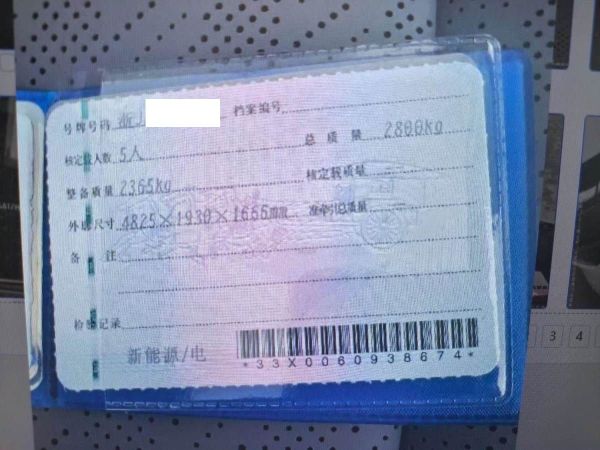 号牌号码 浙J 档案编号
核定载人数 5人 总质量 2800kg
整备质量 2365kg 核定载质量
外廓尺寸 4825×1930×1666mm 准牵引总质量
备注
检验记录
新能源/电
*33X0060938674*
3 4